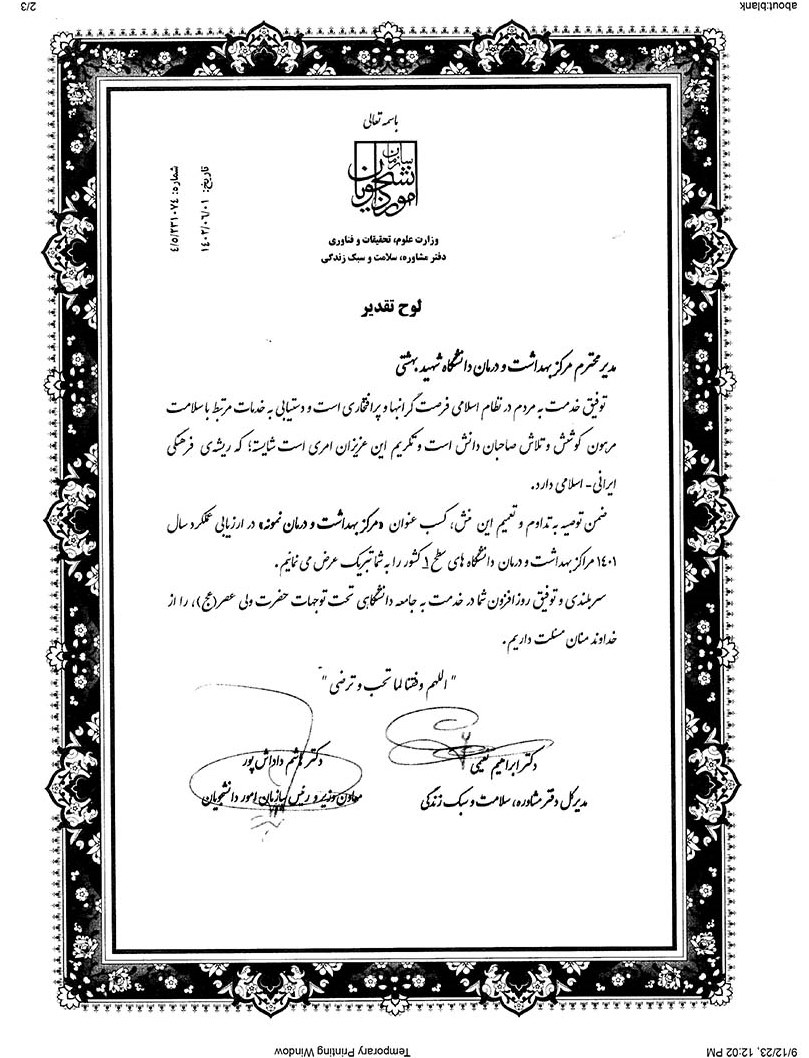 2/3
about:blank
باسمه تعالی
سازمان
امور دانشجویان
وزارت علوم، تحقیقات و فناوری
دفتر مشاوره، سلامت و سبک زندگی
تاریخ: ۱۴۰۲/۰۶/۰۱
شماره: ۴/۵/۲۳۱۰۷۴
لوح تقدیر
مدیر محترم مرکز بهداشت و درمان دانشگاه شهید بهشتی
توفیق خدمت به مردم در نظام اسلامی فرصت گرانبها و پرافتخاری است و دستیابی به خدمات مرتبط با سلامت
مرهون کوشش و تلاش صاحبان دانش است و تکریم این عزیزان امری است شایسته؛ که ریشه‌ی فرهنگی
ایرانی - اسلامی دارد.
ضمن توصیه به تداوم و تعمیم این منش، کسب عنوان «مرکز بهداشت و درمان نمونه» در ارزیابی عملکرد سال
۱۴۰۱ مراکز بهداشت و درمان دانشگاه های سطح ۱ کشور را به شما تبریک عرض می نمائیم.
سربلندی و توفیق روزافزون شما در خدمت به جامعه دانشگاهی تحت توجهات حضرت ولی عصر(عج)، را از
خداوند منان مسئلت داریم.
" اللهم وفقنا لما تحب و ترضی "
دکتر ابراهیم نعیمی
مدیرکل دفتر مشاوره، سلامت و سبک زندگی
دکتر هاشم داداش پور
معاون وزیر و رئیس سازمان امور دانشجویان
9/12/23, 12:02 PM
Temporary Printing Window